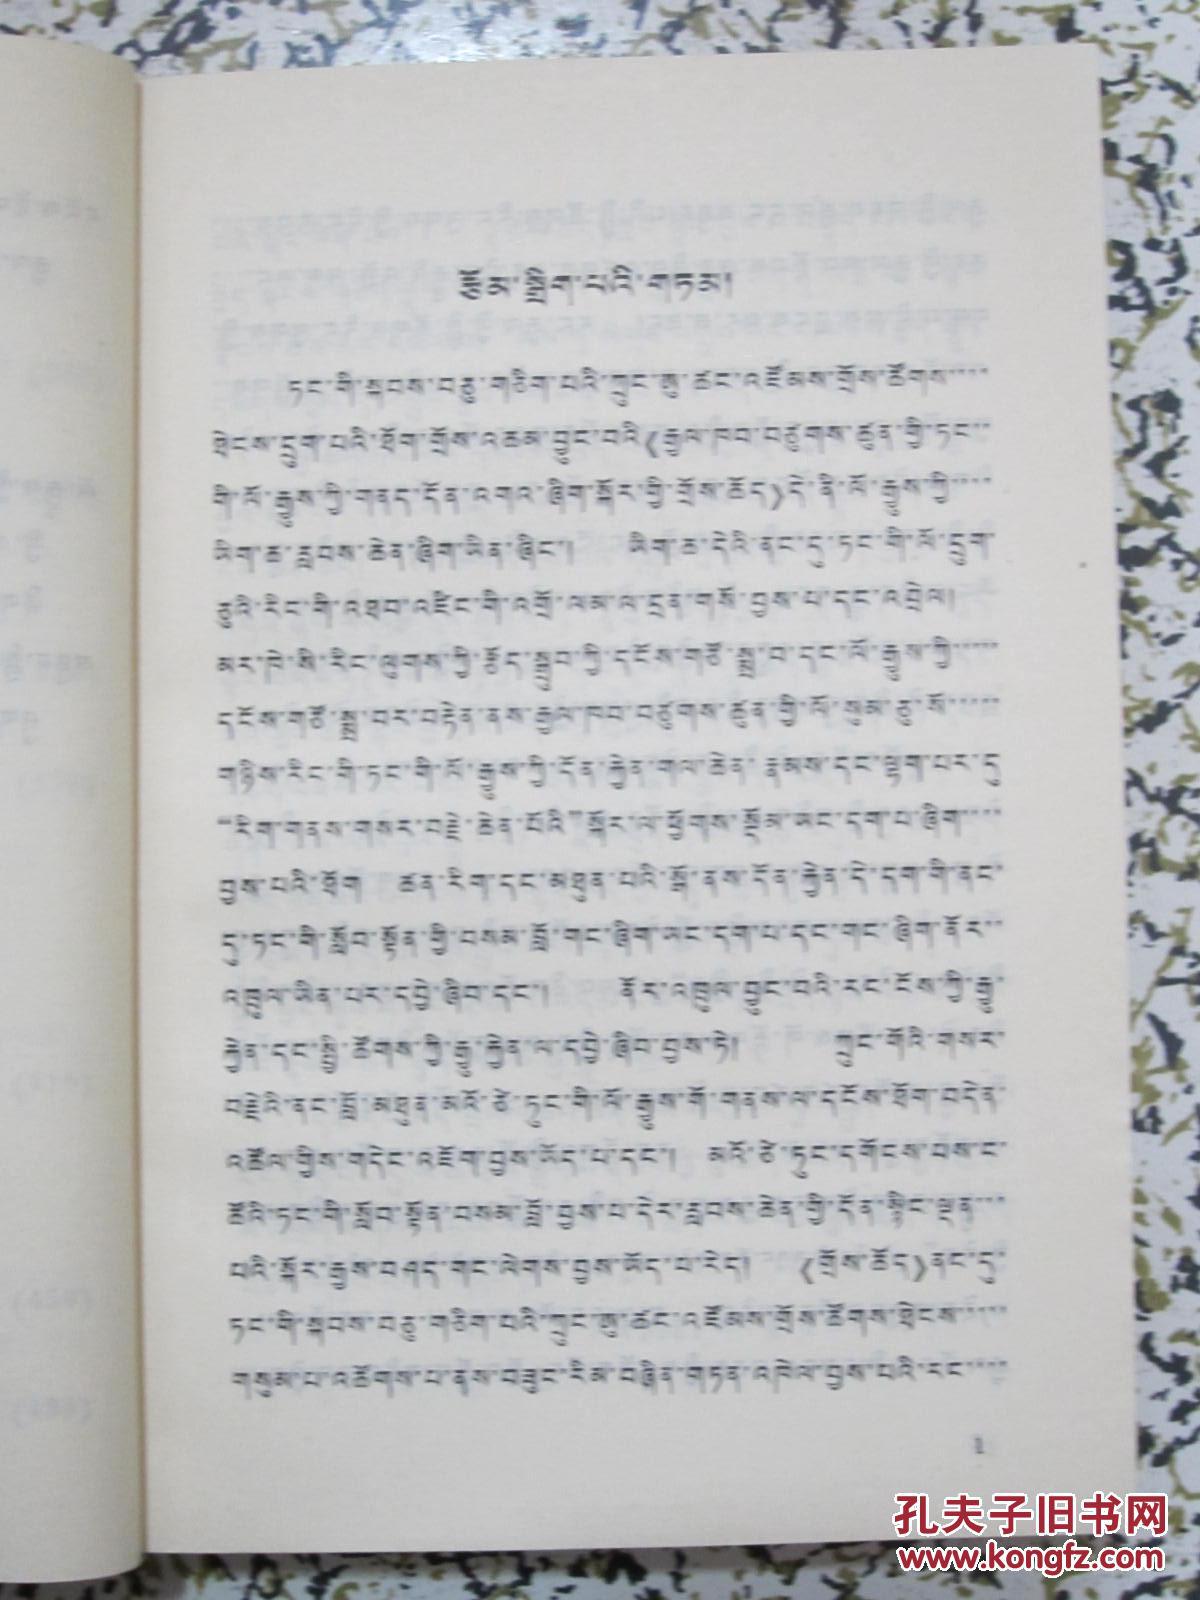 རྩོམ་སྒྲིག་པའི་གཏམ།
ཏང་གི་སྐབས་བཅུ་གཅིག་པའི་ཀྲུང་ཨུ་ཚང་འཛོམས་གྲོས་ཚོགས་་་་
ཐེངས་དྲུག་པའི་ཐོག་གྲོས་འཆམ་བྱུང་བའི《རྒྱལ་ཁབ་བཙུགས་ཚུན་གྱི་ཏང་་
གི་ལོ་རྒྱུས་ཀྱི་གནད་དོན་འགའ་ཞིག་སྐོར་གྱི་གྲོས་ཆོད》དེ་ནི་ལོ་རྒྱུས་ཀྱི་་་་
ཡིག་ཆ་རླབས་ཆེན་ཞིག་ཡིན་ཞིང་། ཡིག་ཆ་དེའི་ནང་དུ་ཏང་གི་ལོ་དྲུག་
ཅུའི་རིང་གི་འཐབ་འཛིང་གི་འགྲོ་ལམ་ལ་དྲན་གསོ་བྱས་པ་དང་འབྲེལ།
མར་ཁེ་སི་རིང་ལུགས་ཀྱི་རྩོད་སྒྲུབ་ཀྱི་དངོས་གཙོ་སྨྲ་བ་དང་ལོ་རྒྱུས་ཀྱི་་་་་
དངོས་གཙོ་སྨྲ་བར་བརྟེན་ནས་རྒྱལ་ཁབ་བཙུགས་ཚུན་གྱི་ལོ་སུམ་ཅུ་སོ་་་་་
གཉིས་རིང་གི་ཏང་གི་ལོ་རྒྱུས་ཀྱི་དོན་རྐྱེན་གལ་ཆེན་རྣམས་དང་ལྷག་པར་དུ
“རིག་གནས་གསར་བརྗེ་ཆེན་པོའི”སྐོར་ལ་ཕྱོགས་སྡོམ་ཡང་དག་པ་ཞིག་་་་
བྱས་པའི་ཐོག ཚན་རིག་དང་མཐུན་པའི་སྒོ་ནས་དོན་རྐྱེན་དེ་དག་གི་ནང་
དུ་ཏང་གི་སློབ་སྟོན་གྱི་བསམ་བློ་གང་ཞིག་ཡང་དག་པ་དང་གང་ཞིག་ནོར་་
འཁྲུལ་ཡིན་པར་དབྱེ་ཞིབ་དང་། ནོར་འཁྲུལ་བྱུང་བའི་རང་ངོས་ཀྱི་རྒྱུ་
རྐྱེན་དང་སྤྱི་ཚོགས་ཀྱི་རྒྱུ་རྐྱེན་ལ་དབྱེ་ཞིབ་བྱས་ཏེ། ཀྲུང་གོའི་གསར་
བརྗེའི་ནང་བློ་མཐུན་མའོ་ཙེ་ཏུང་གི་ལོ་རྒྱུས་གོ་གནས་ལ་དངོས་ཐོག་བདེན་
འཚོལ་གྱིས་གདེང་འཇོག་བྱས་ཡོད་པ་དང་། མའོ་ཙེ་ཏུང་དགོངས་པས་ང་
ཚོའི་ཏང་གི་སློབ་སྟོན་བསམ་བློ་བྱས་པ་དེར་རླབས་ཆེན་གྱི་དོན་སྙིང་ལྡན་་་
པའི་སྐོར་རྒྱས་བཤད་གང་ལེགས་བྱས་ཡོད་པ་རེད། 《གྲོས་ཆོད》ནང་དུ་
ཏང་གི་སྐབས་བཅུ་གཅིག་པའི་ཀྲུང་ཨུ་ཚང་འཛོམས་གྲོས་ཚོགས་ཐེངས་་་་་
གསུམ་པ་འཚོགས་པ་ནས་བཟུང་རིམ་བཞིན་གཏན་འཁེལ་བྱས་པའི་རང་་་་་
1
孔夫子旧书网
www.kongfz.com